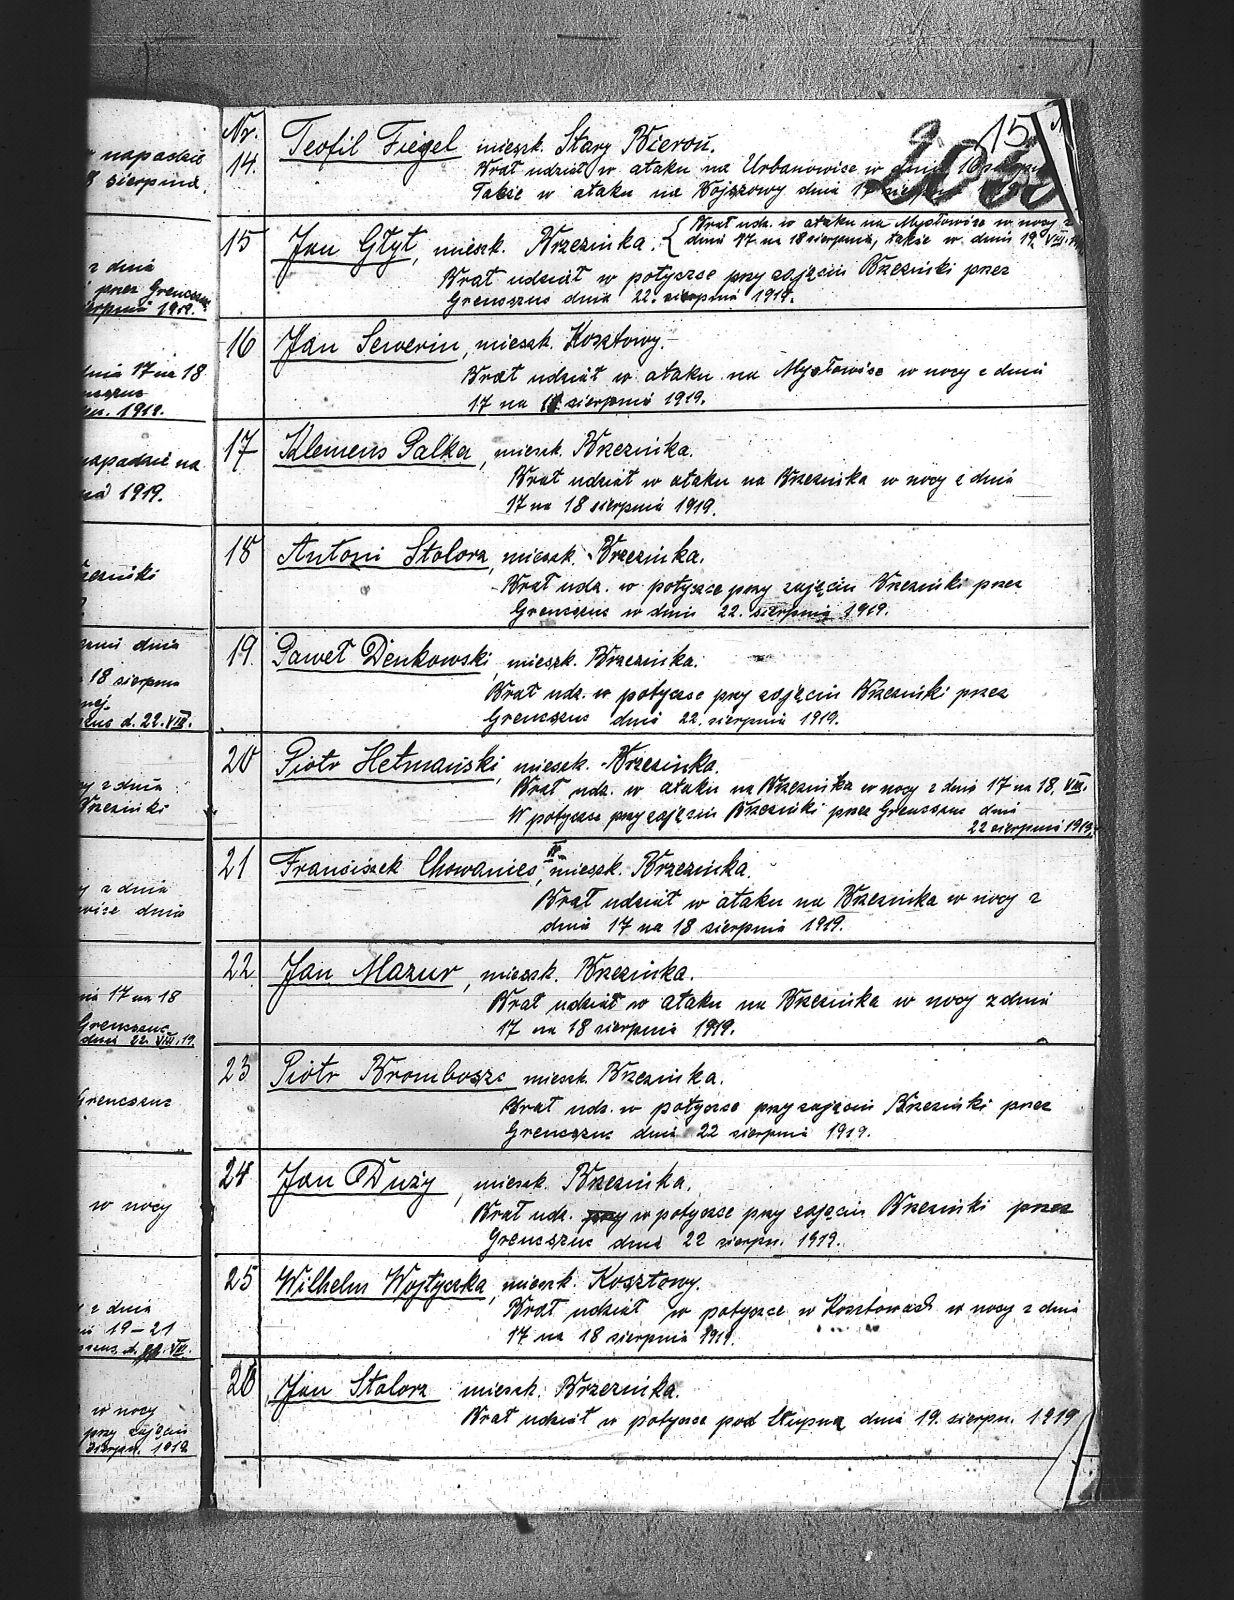 napadzie
8 sierpnia.
z dnia
przez Grenzszuc
sierpnia 1919.
dnia 17 na 18
1919.
napadzie na
1919.
dnia
18 sierpnia
d. 22. VIII.
z dnia
Brzezinki
z dnia
dnia
17 na 18
Grenzszuc
dnia 22. VIII. 19.
Grenzszuc
w nocy
z dnia
19-21
VIII.
w nocy
przy zajęciu
sierpn. 1919
15
Nr.
14. Teofil Fiegel mieszk. Stary Bieruń.
Brał udział w ataku na Urbanowice w dniu
Także w ataku na Bojszowy dnia 17
15 Jan Głyt, mieszk. Brzezinka. { Brał udz. w ataku na Mysłowice w nocy z
dnia 17 na 18 sierpnia, także w dniu 19. VIII.
Brał udział w potyczce przy zajęciu Brzezinki przez
Grenzszuc dnia 22. sierpnia 1919.
16 Jan Sewerin, mieszk. Kosztowy.
Brał udział w ataku na Mysłowice w nocy z dnia
17 na 18 sierpnia 1919.
17 Klemens Palka, mieszk. Brzezinka.
Brał udział w ataku na Brzezinka w nocy z dnia
17 na 18 sierpnia 1919.
18 Antoni Stolorz, mieszk. Brzezinka.
Brał udz. w potyczce przy zajęciu Brzezinki przez
Grenzszuc w dniu 22. sierpnia 1919.
19. Paweł Denkowski, mieszk. Brzezinka.
Brał udz. w potyczce przy zajęciu Brzezinki przez
Grenzszuc dnia 22. sierpnia 1919.
20 Piotr Hetmański, mieszk. Brzezinka.
Brał udz. w ataku na Brzezinka w nocy z dnia 17 na 18. VIII.
W potyczce przy zajęciu Brzezinki przez Grenzszuc dnia
22 sierpnia 1919.
21 Franciszek Chowaniec IV., mieszk. Brzezinka.
Brał udział w ataku na Brzezinka w nocy z
dnia 17 na 18 sierpnia 1919.
22 Jan Mazur, mieszk. Brzezinka.
Brał udział w ataku na Brzezinka w nocy z dnia
17 na 18 sierpnia 1919.
23 Piotr Brombosze mieszk. Brzezinka.
Brał udz. w potyczce przy zajęciu Brzezinki przez
Grenzszuc dnia 22 sierpnia 1919.
24 Jan Duży, mieszk. Brzezinka.
Brał udz. przy w potyczce przy zajęciu Brzezinki przez
Grenzszuc dnia 22 sierpn. 1919.
25 Wilhelm Wojtyczka, mieszk. Kosztowy.
Brał udział w potyczce w Kosztowach w nocy z dnia
17 na 18 sierpnia 1919.
26 Jan Stolorz mieszk. Brzezinka.
Brał udział w potyczce pod Słupną dnia 19. sierpn. 1919